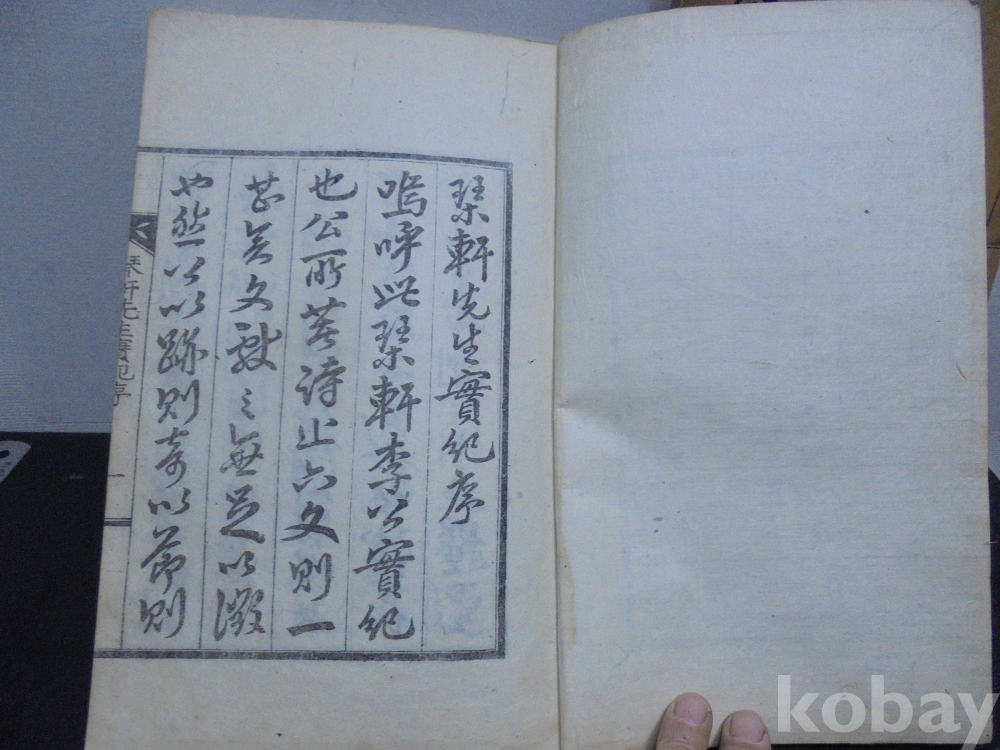 琹軒先生實紀序
嗚呼此琹軒李公實紀
也公所著詩止六文則一
甚矣文獻之無足以徵
也然公以跡則奇以節則
琴軒先生實紀序
一
kobay